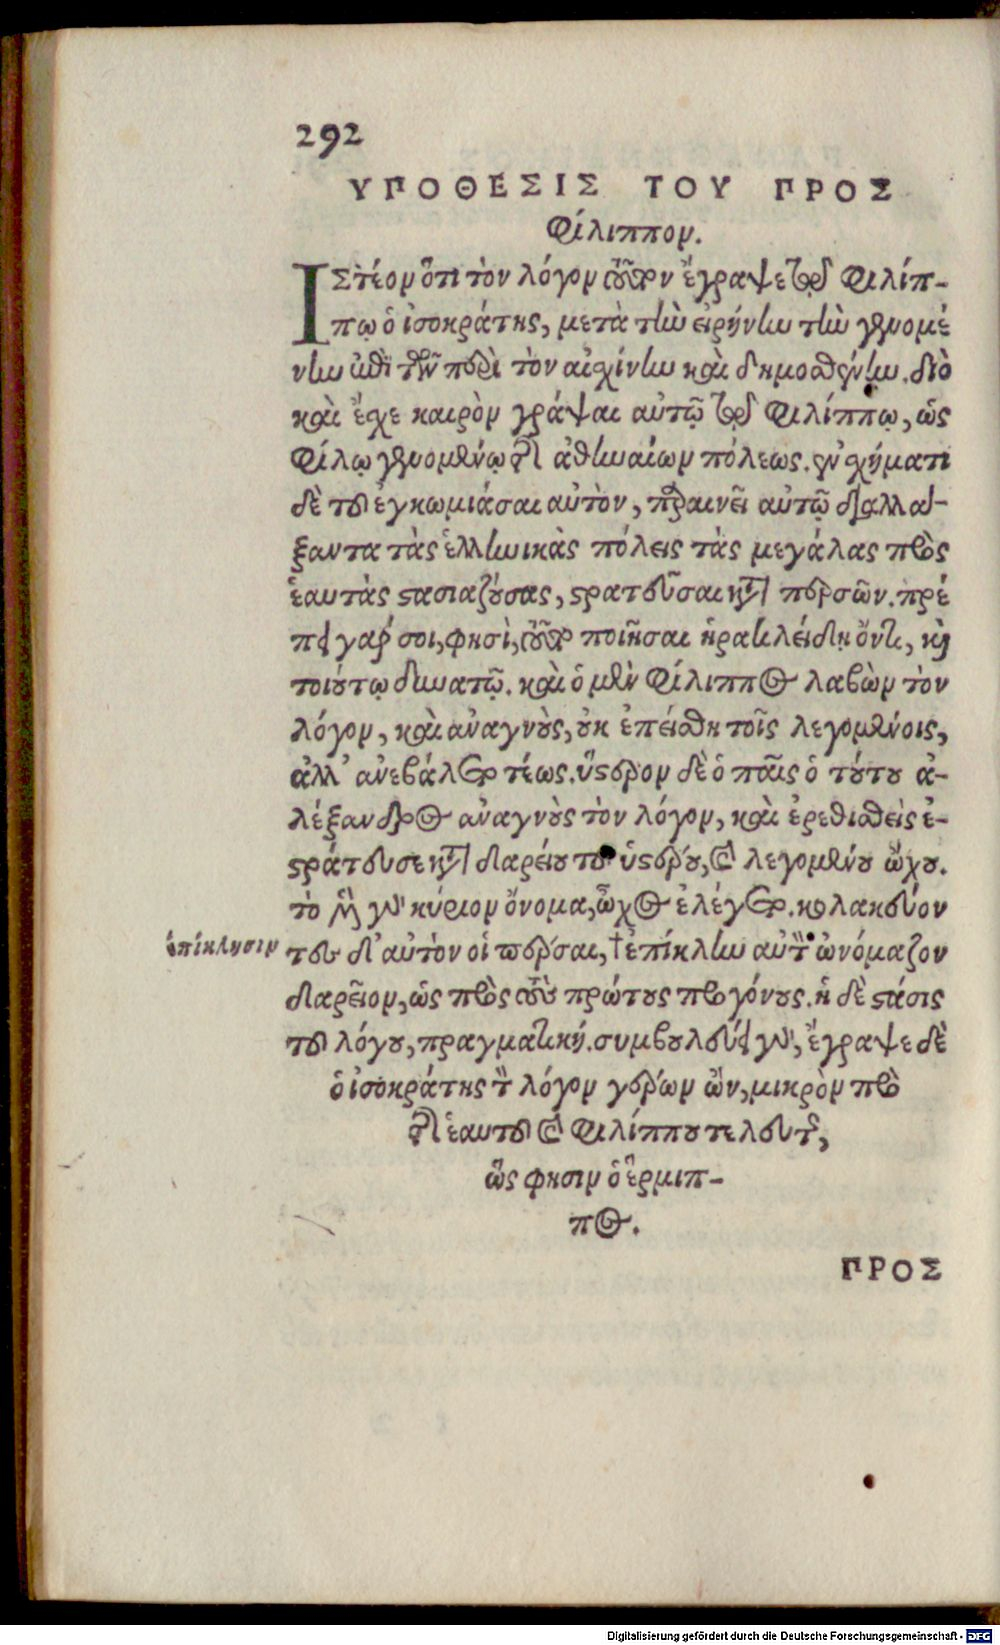 292
ΥΠΟΘΕΣΙΣ ΤΟΥ ΠΡΟΣ
Φίλιππον.
Ιστέον ὅτι τὸν λόγον τοῦτον ἔγραψε τῷ Φιλίπ-
πῳ ὁ ἰσοκράτης, μετὰ τὴν εἰρήνην τὴν γενομέ
νην ὑπὸ τῶν περὶ τὸν αἰσχίνην καὶ δημοσθένην. διὸ
καὶ ἔσχε καιρὸν γράψαι αὐτῷ τῷ Φιλίππῳ, ὡς
Φίλῳ γενομένῳ τῆς ἀθηναίων πόλεως. ἐν σχήματι
δὲ τοῦ ἐγκωμιάσαι αὐτὸν, παραινεῖ αὐτῷ διαλλά-
ξαντα τὰς ἑλληνικὰς πόλεις τὰς μεγάλας πρὸς
ἑαυτὰς στασιαζούσας, στρατεῦσαι κατὰ περσῶν. πρέ
πει γάρ σοι, φησὶ, τοῦτο ποιῆσαι ἡρακλείδῃ ὄντι, καὶ
τοιούτῳ δυνατῷ. καὶ ὁ μὲν Φίλιππος λαβὼν τὸν
λόγον, καὶ ἀναγνοὺς, οὐκ ἐπείσθη τοῖς λεγομένοις,
ἀλλ' ἀνεβάλετο τέως. ὕστερον δὲ ὁ παῖς ὁ τούτου ἀ-
λέξανδρος ἀναγνοὺς τὸν λόγον, καὶ ἐρεθισθεὶς ἐ-
στράτευσε κατὰ δαρείου τοῦ ὑστέρου, τοῦ λεγομένου ὤχου.
τὸ μὲν γὰρ κύριον ὄνομα, ὦχος ἐλέγετο. κολακεύον
τες δ' αὐτὸν οἱ πέρσαι, † ἐπίκλην αὐτὸν ὠνόμαζον
ἐπίκλησιν
δαρεῖον, ὡς πρὸς τοὺς πρώτους προγόνους. ἡ δὲ στάσις
τοῦ λόγου, πραγματική. συμβουλεύει γὰρ, ἔγραψε δὲ
ὁ ἰσοκράτης τὸν λόγον γέρων ὢν, μικρὸν πρὸ
τῆς ἑαυτοῦ καὶ Φιλίππου τελευτῆς,
ὥς φησιν ὁ ἕρμιπ-
πος.
ΠΡΟΣ
Digitalisierung gefördert durch die Deutsche Forschungsgemeinschaft - DFG